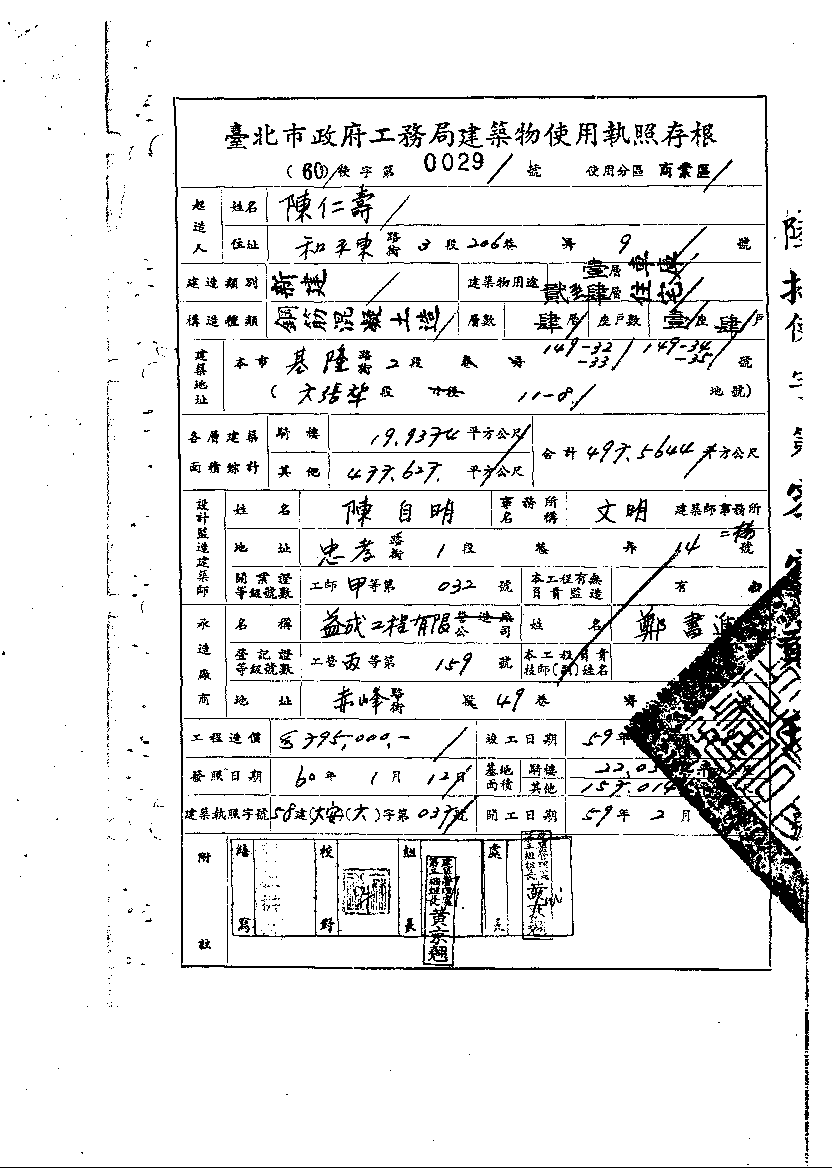 臺北市政府工務局建築物使用執照存根
(60)使字第 0029 號 使用分區 商業區
起造人 姓名 陳仁壽
住址 和平東路街 3段206巷 弄 9 號
建造類別 新建 建築物用途 壹層車庫 貳至肆層住宅
構造種類 鋼筋混凝土造 層數 肆層 座戶數 壹座肆戶
建築地址 本市 基隆路街 2段 巷 弄 149-32 -33 149-34 -35 號
( 段 小段 11-8 地號)
各層建築面積綜計 騎樓 19.9374 平方公尺 合計 497.5644 平方公尺
其他 477.627 平方公尺
設計監造建築師 姓名 陳自明 事務所名稱 文明 建築師事務所
地址 忠孝路街 1段 巷 弄 14 號 二楼
開業證等級號數 工師甲等第 032 號 本工程有無負責監造 有
承造廠商 名稱 益成工程有限營造廠公司 姓名 鄭書進
登記證等級號數 工營丙等第 159 號 本工程負責技師(副)姓名
地址 赤峰路街 段 49巷 弄
工程造價 395,000.- 竣工日期 59年 月
發照日期 60年 1月 12日 基地面積 騎樓 22.0
其他 157.014
建築執照字號 58建(大安)(大)字第 037 號 開工日期 59年 2月
附註 繕寫 校對 組長 處長
黃京翹